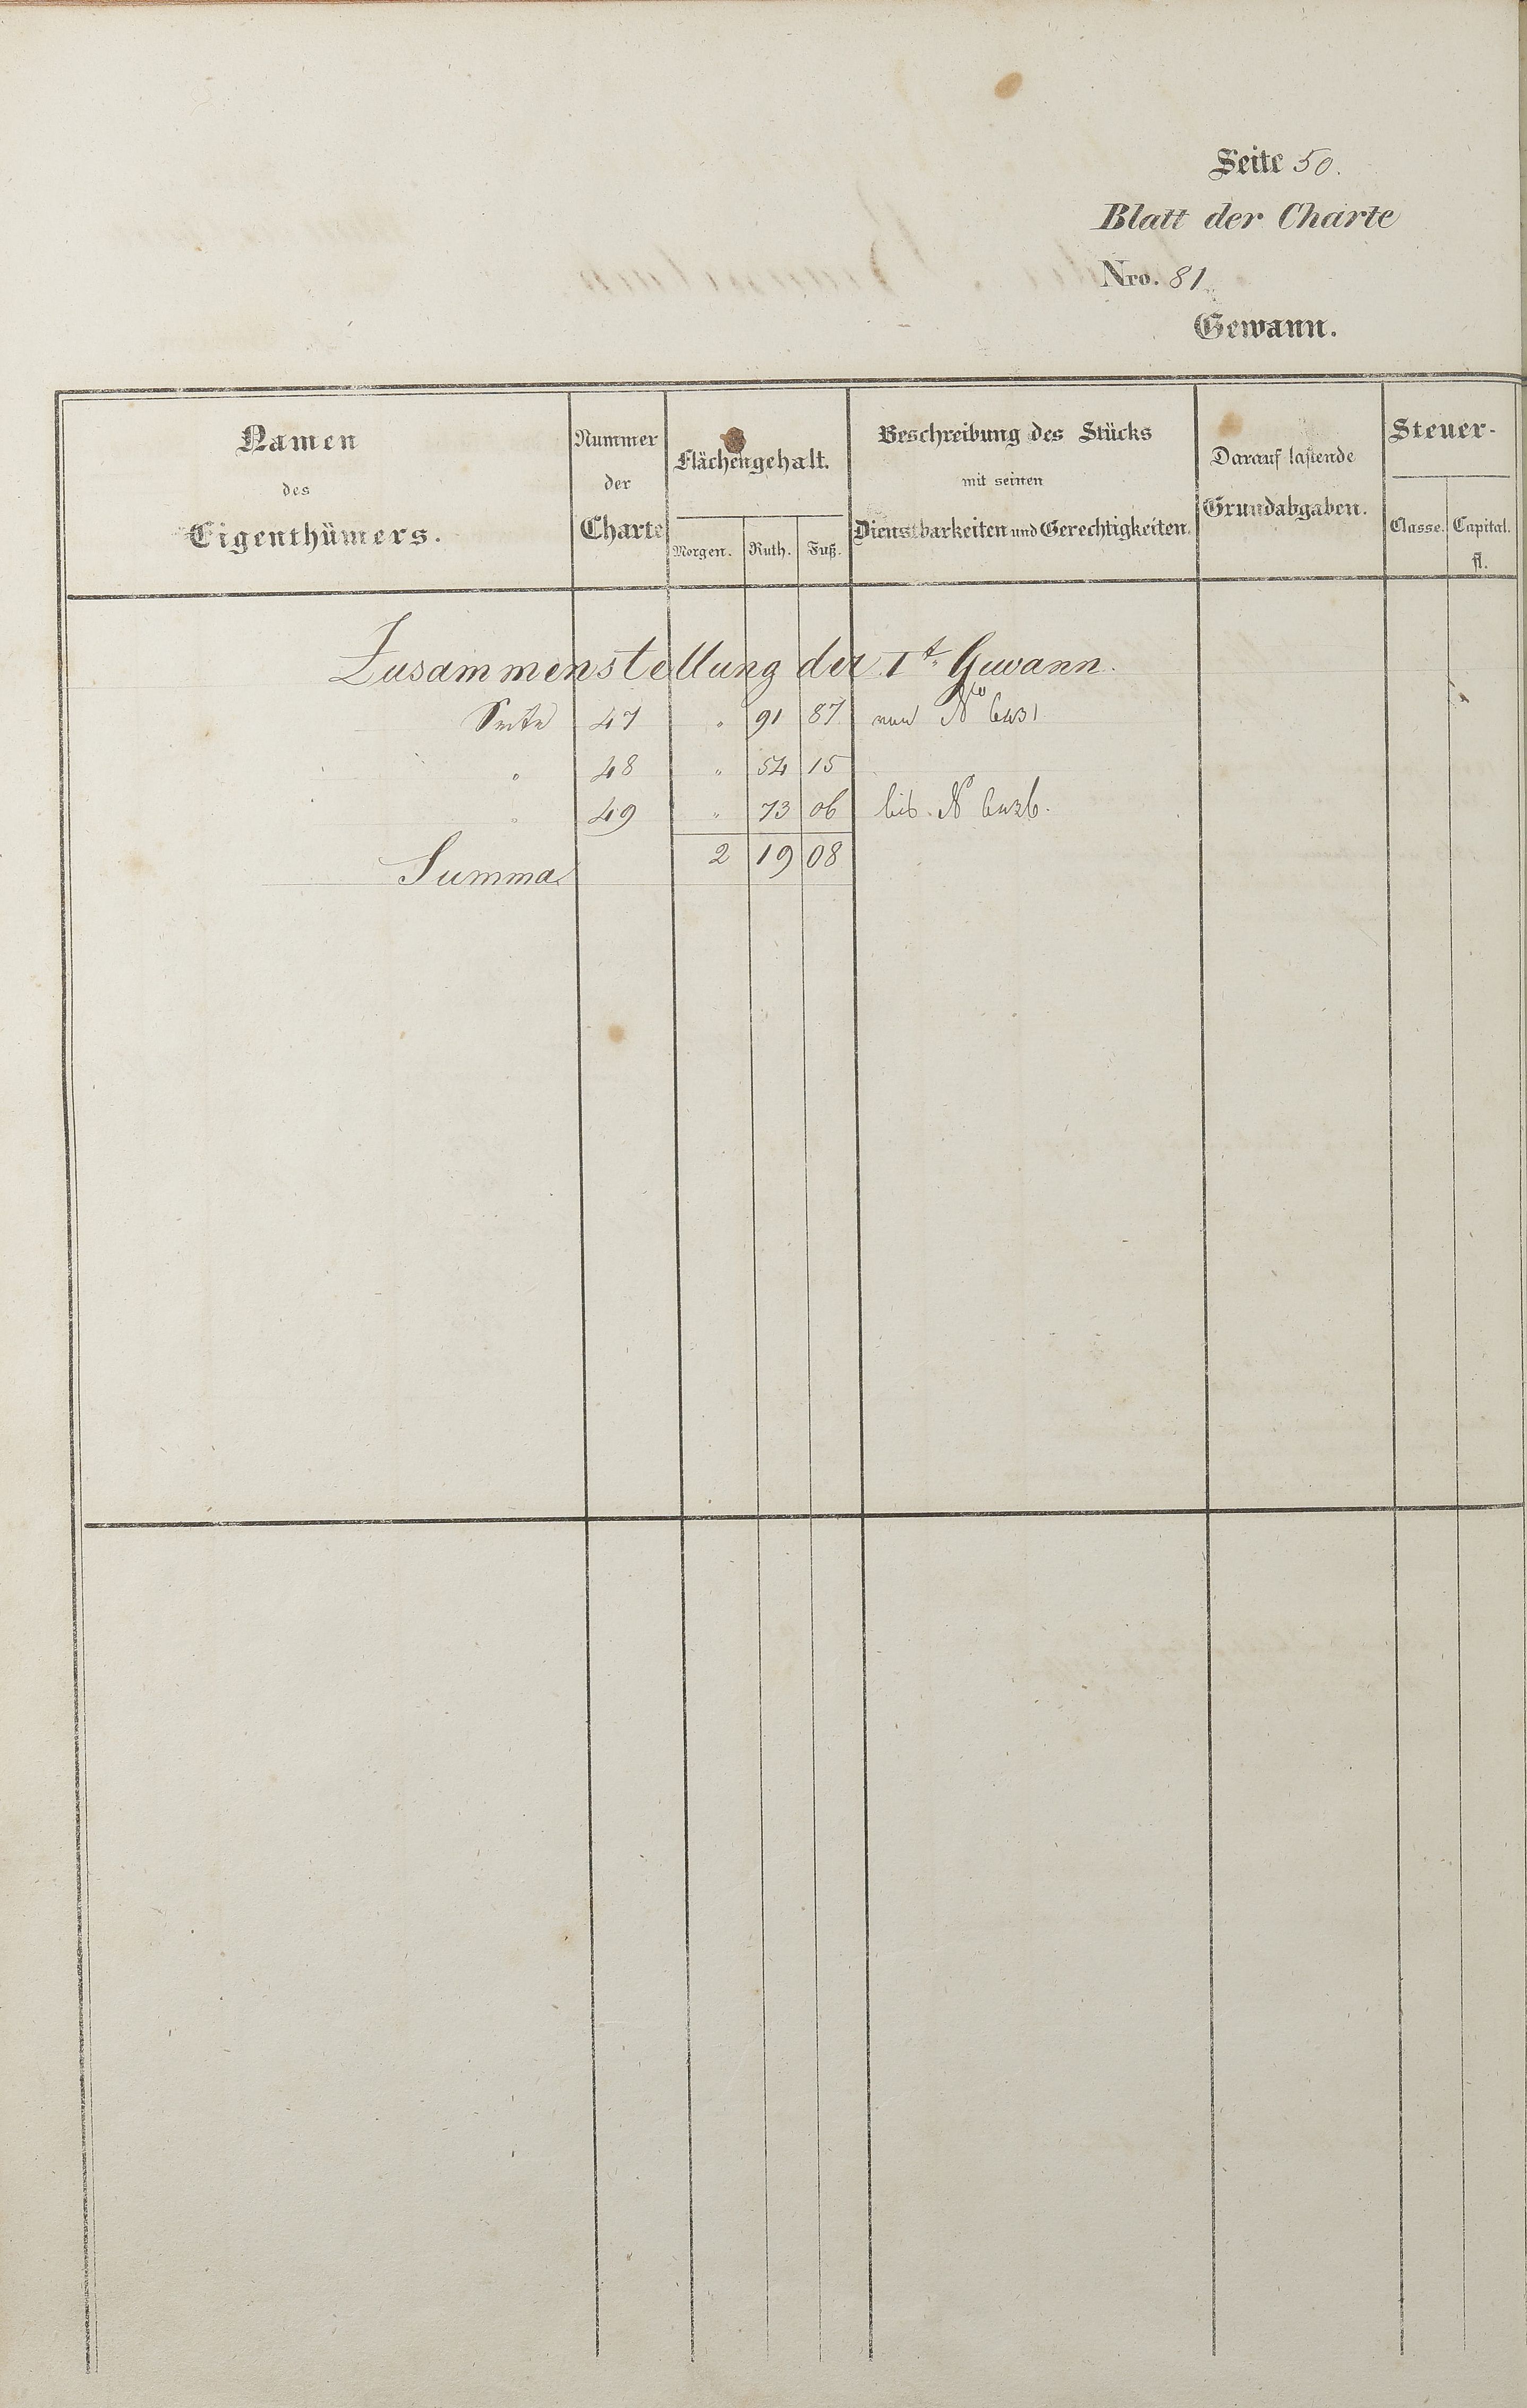 Seite 50.
Blatt der Charte
Nro. 81
Gewann.
Namen
des
Eigenthümers.
Nummer
der
Charte
Flächengehalt.
Morgen. Ruth. Fuß.
Beschreibung des Stücks
mit seinen
Dienstbarkeiten und Gerechtigkeiten.
Darauf lastende
Grundabgaben.
Steuer-
Classe. Capital.
fl.
Zusammenstellung der I.t Gewann.
Seite 47 " 91 87 von No
" 48 " 54 15
" 49 " 73 06 bis No
Summa 2 19 08